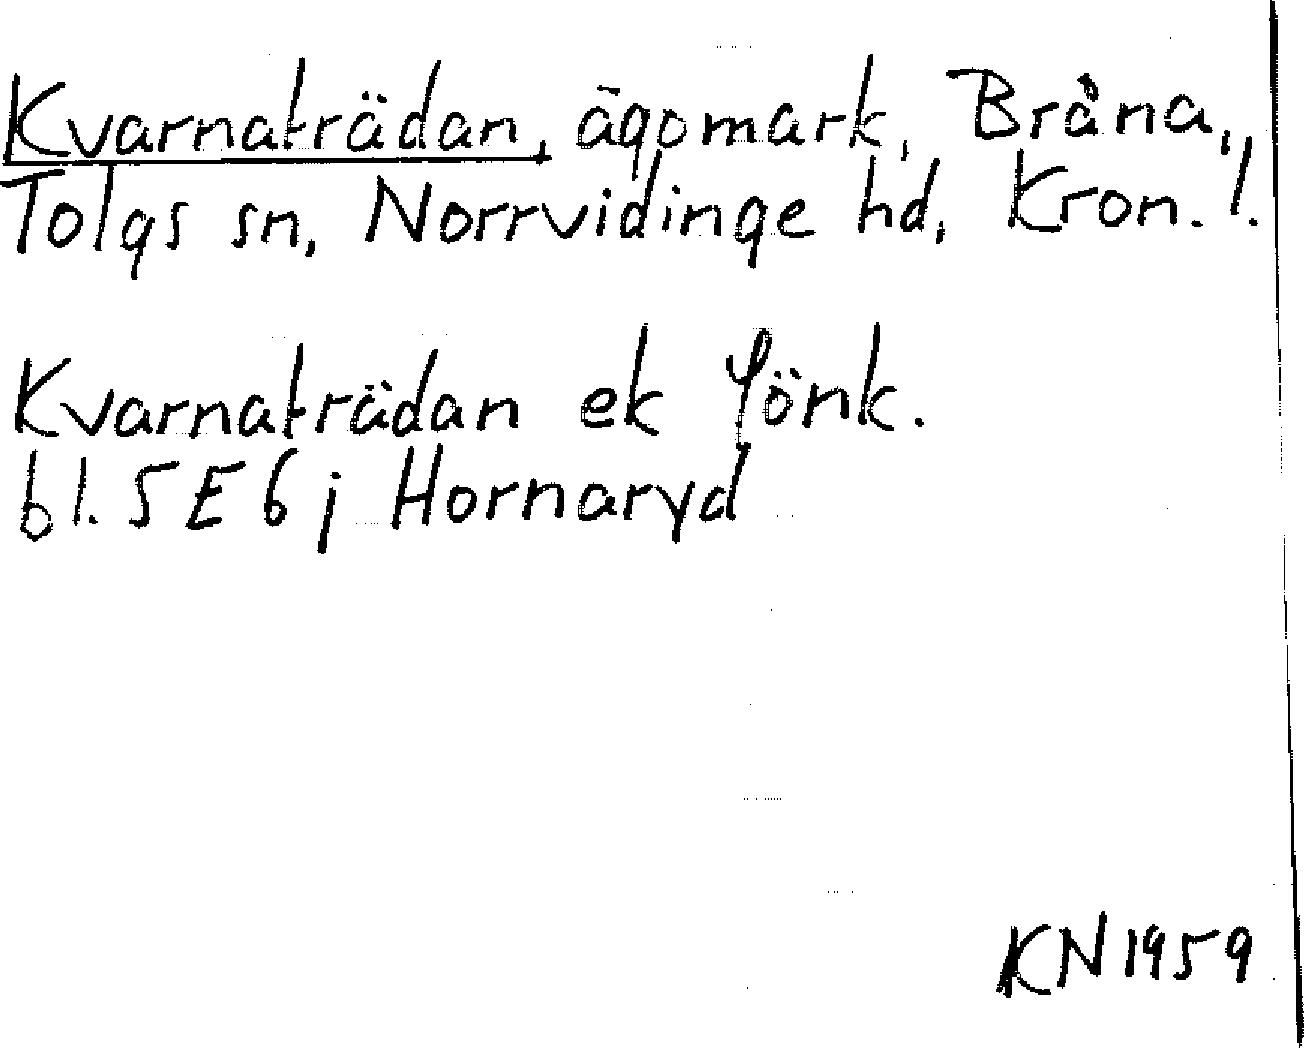 Kvarnaträdan, ägomark, Bråna,
Tolgs sn, Norrvidinge hd, Kron. l.
Kvarnaträdan ek Jönk.
bl. 5E6j Hornaryd
KN 1959